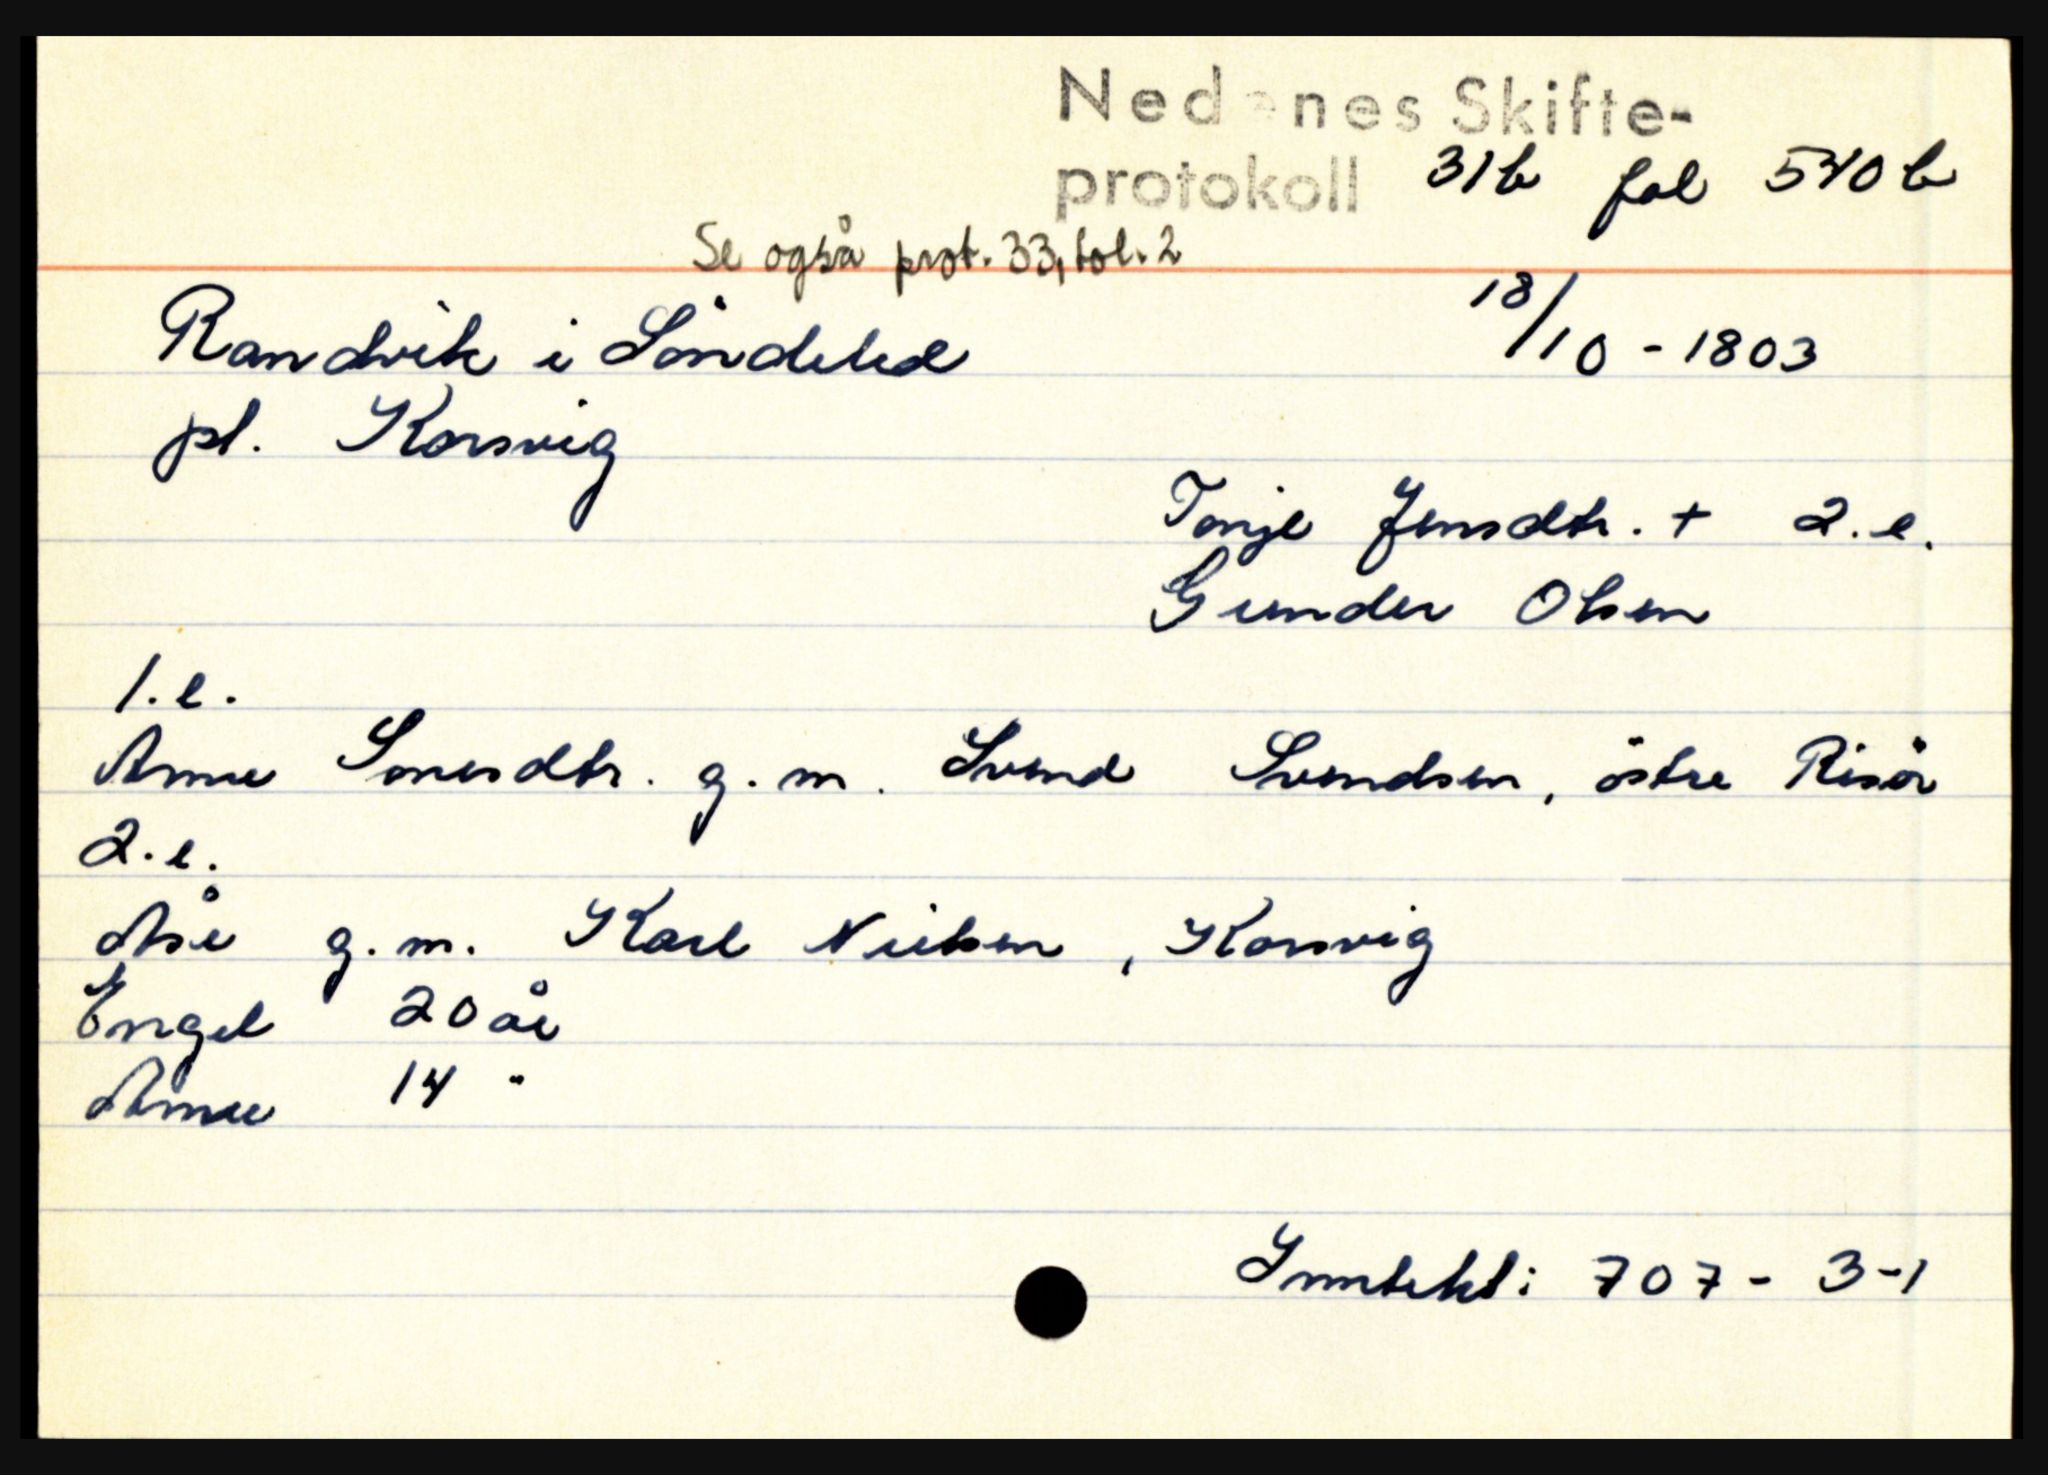 Nedenes Skifte-
protokoll 31b fol 540b
Se også prot. 33, fol. 2
18/10 - 1803
Randvik i Söndeled
pl. Korsvig
Tonje Jensdtr. + 2. e.
Gunder Olsen
1. e.
Anne Sonesdtr. g. m. Svend Svendsen, östre Risör
2. e.
Åse g. m. Karl Nielsen, Korsvig
Engel 20 år
Anne 14 "
Inntekt: 707 - 3-1